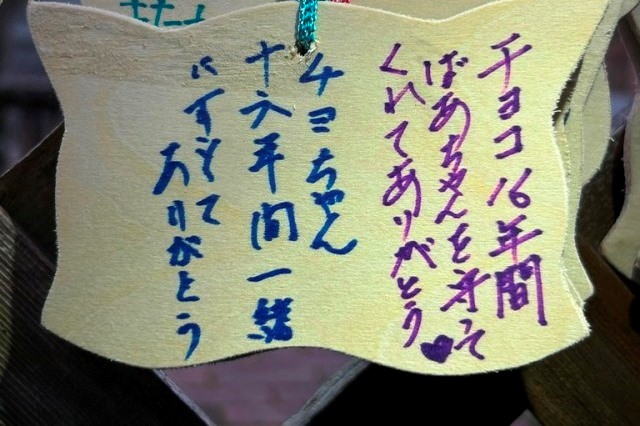 チヨコ16年間
ばあちゃんを守って
くれてありがとう♥
チヨちゃん
十六年間一緒
にすごして
ありがとう